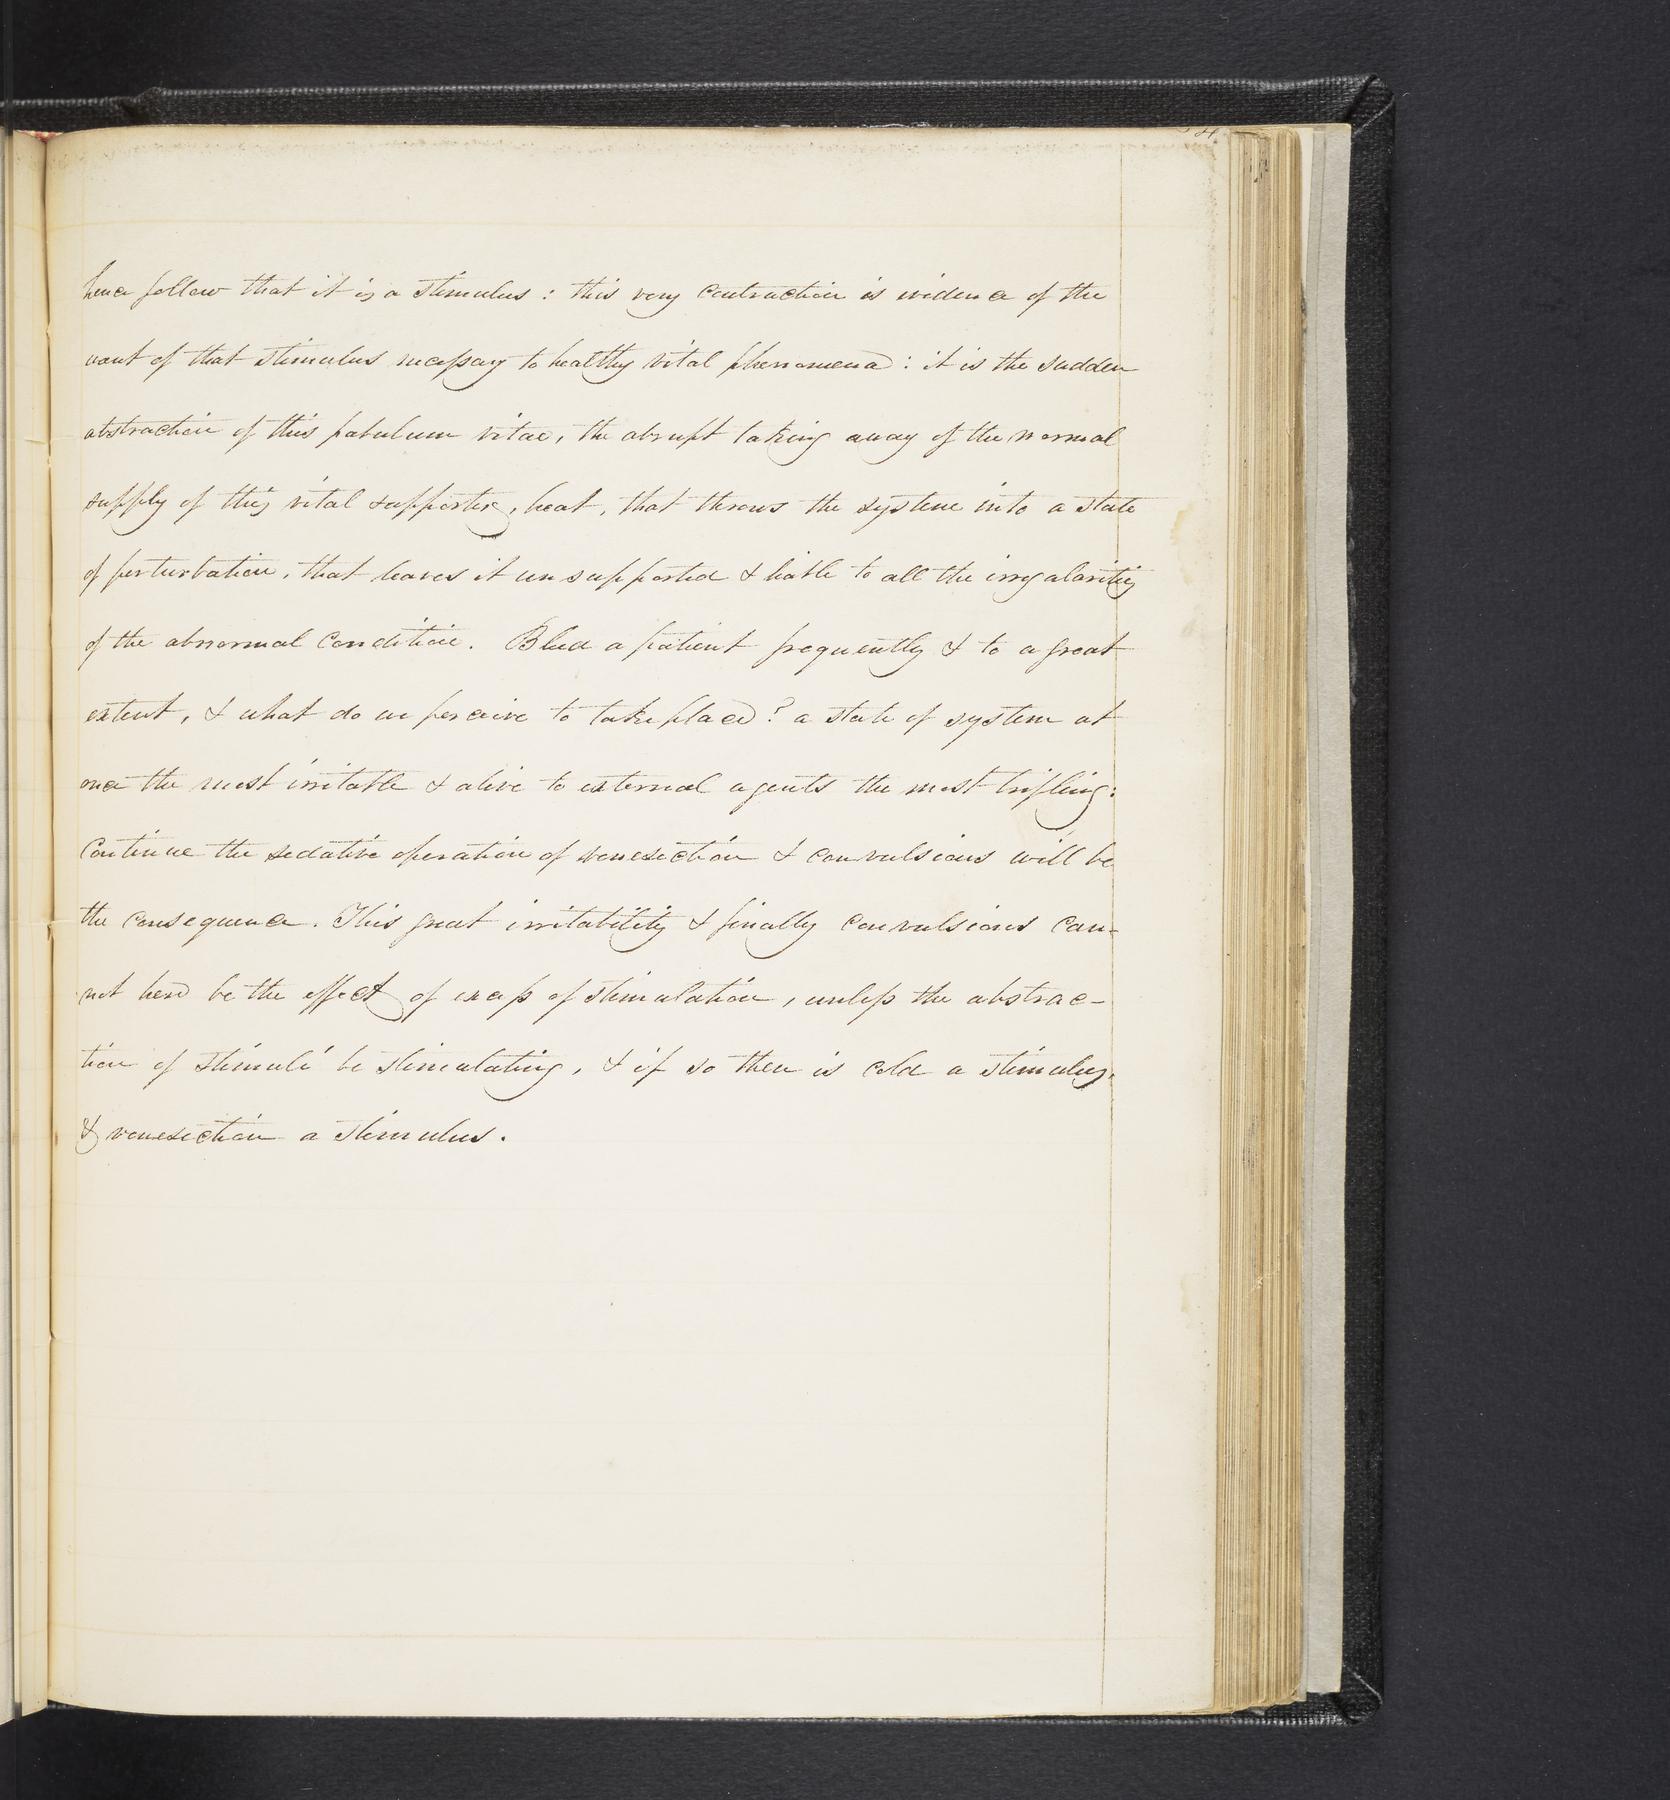 hence follow that it is a stimulus : this very contraction is evidence of the
want of that stimulus necessary to healthy vital phenomena : it is the sudden
abstraction of this pabulum vitae, the abrupt taking away of the normal
supply of this vital supporter, heat, that throws the system into a state
of perturbation, that leaves it unsupported & liable to all the irregularities
of the abnormal condition. Bleed a patient frequently & to a great
extent, & what do we perceive to take place? a state of system at
once the most irritable & alive to external agents the most trifling:
Continue the sedative operation of venesection & convulsions will be
the consequence. This great irritability & finally convulsions can-
not here be the effect of excess of stimulation, unless the abstrac-
tion of stimuli be stimulating, & if so then is cold a stimulus,
& venesection a stimulus.